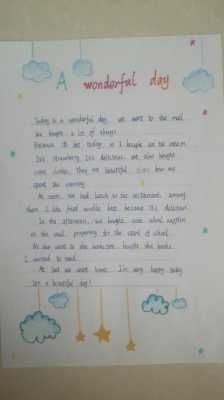 A wonderful day
Today is a wonderful day. we went to the mall.
We bought a lot of things.
Because it hot today, so I bought an ice cream.
It's strawberry. It's delicious. we also bought
some clothes. They are beautiful. how we
spent the morning.
At noon, we had lunch in the restaurant. among
them, I like fried noodles best, because it's delicious.
In the afternoon, we bought some school supplies
in the mall, preparing for the start of school.
We also went to the bookstore, bought the books
I wanted to read.
At last we went home. I'm very happy today
It's a beautiful day!